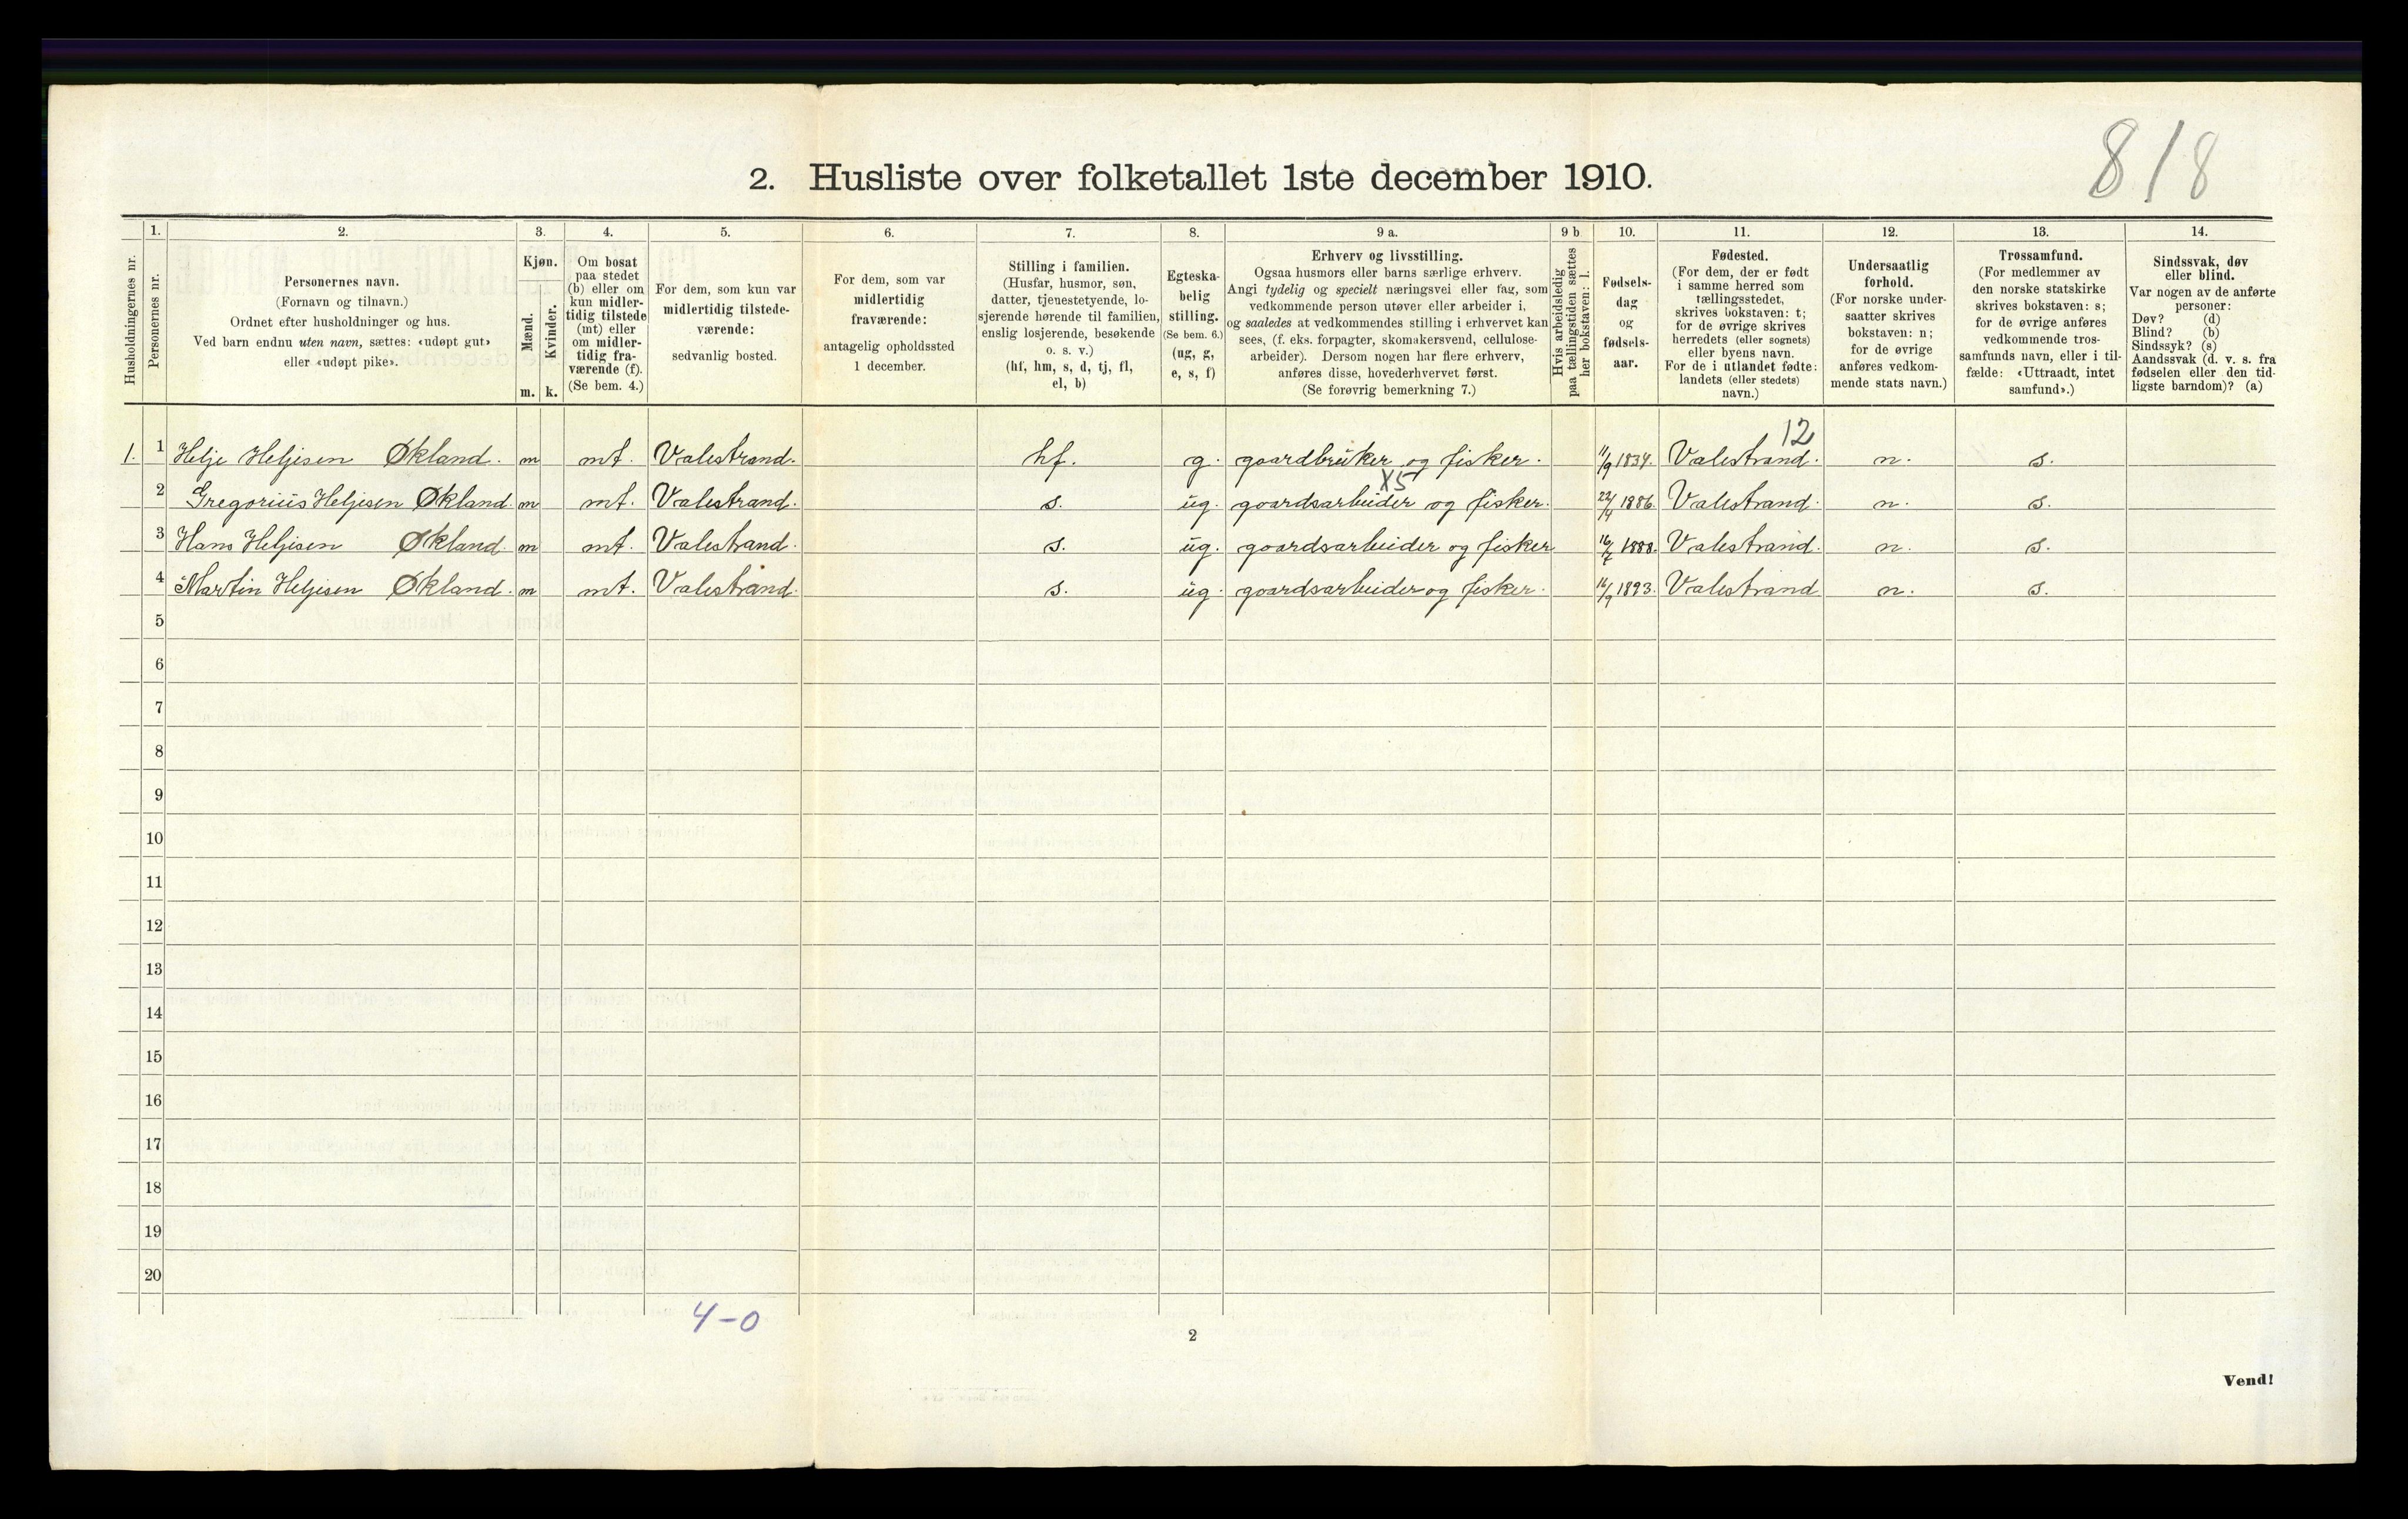 818
2. Husliste over folketallet 1ste december 1910.
Husholdningernes nr.
1.
Personernes nr.
2.
Personernes navn.
(Fornavn og tilnavn.)
Ordnet efter husholdninger og hus.
Ved barn endnu uten navn, sættes: «udøpt gut»
eller «udøpt pike».
3.
Kjøn.
Mænd.
Kvinder.
m. k.
4.
Om bosat
paa stedet
(b) eller om
kun midler-
tidig tilstede
(mt) eller
om midler-
tidig fra-
værende (f).
(Se bem. 4.)
5.
For dem, som kun var
midlertidig tilstede-
værende:
sedvanlig bosted.
6.
For dem, som var
midlertidig
fraværende:
antagelig opholdssted
1 december.
7.
Stilling i familien.
(Husfar, husmor, søn,
datter, tjenestetyende, lo-
sjerende hørende til familien,
enslig losjerende, besøkende
o. s. v.)
(hf, hm, s, d, tj, fl,
el, b)
8.
Egteska-
belig
stilling.
(Se bem. 6.)
(ug, g,
e, s, f)
9 a.
Erhverv og livsstilling.
Ogsaa husmors eller barns særlige erhverv.
Angi tydelig og specielt næringsvei eller fag, som
vedkommende person utøver eller arbeider i,
og saaledes at vedkommendes stilling i erhvervet kan
sees, (f. eks. forpagter, skomakersvend, cellulose-
arbeider). Dersom nogen har flere erhverv,
anføres disse, hovederhvervet først.
(Se forøvrig bemerkning 7.)
9 b.
Hvis arbeidsledig
paa tællingstiden sættes
her bokstaven: l.
10.
Fødsels-
dag
og
fødsels-
aar.
11.
Fødested.
(For dem, der er født
i samme herred som
tællingsstedet,
skrives bokstaven: t;
for de øvrige skrives
herredets (eller sognets)
eller byens navn.
For de i utlandet fødte:
landets (eller stedets)
navn.)
12.
Undersaatlig
forhold.
(For norske under-
saatter skrives
bokstaven: n;
for de øvrige
anføres vedkom-
mende stats navn.)
13.
Trossamfund.
(For medlemmer av
den norske statskirke
skrives bokstaven: s;
for de øvrige anføres
vedkommende tros-
samfunds navn, eller i til-
fælde: «Uttraadt, intet
samfund».)
14.
Sindssvak, døv
eller blind.
Var nogen av de anførte
personer:
Døv? (d)
Blind? (b)
Sindssyk? (s)
Aandssvak (d. v. s. fra
fødselen eller den tid-
ligste barndom)? (a)
12
1. 1 Helje Heljesen Økland. m mt. Valestrand. hf. g. gaardbruker og fisker. 11/9 1834. Valestrand. n. s.
X5
2 Gregorius Heljesen Økland. m mt. Valestrand. s. ug. gaardsarbeider og fisker. 22/4 1886. Valestrand. n. s.
3 Hans Heljesen Økland. m mt. Valestrand. s. ug. gaardsarbeider og fisker 1888. Valestrand. n. s.
4 Martin Heljesen Økland. m mt. Valestrand. s. ug. gaardsarbeider og fisker. 16/9 1893. Valestrand n. s.
5
6
7
8
9
10
11
12
13
14
15
16
17
18
19
20
4-0
2
Vend!